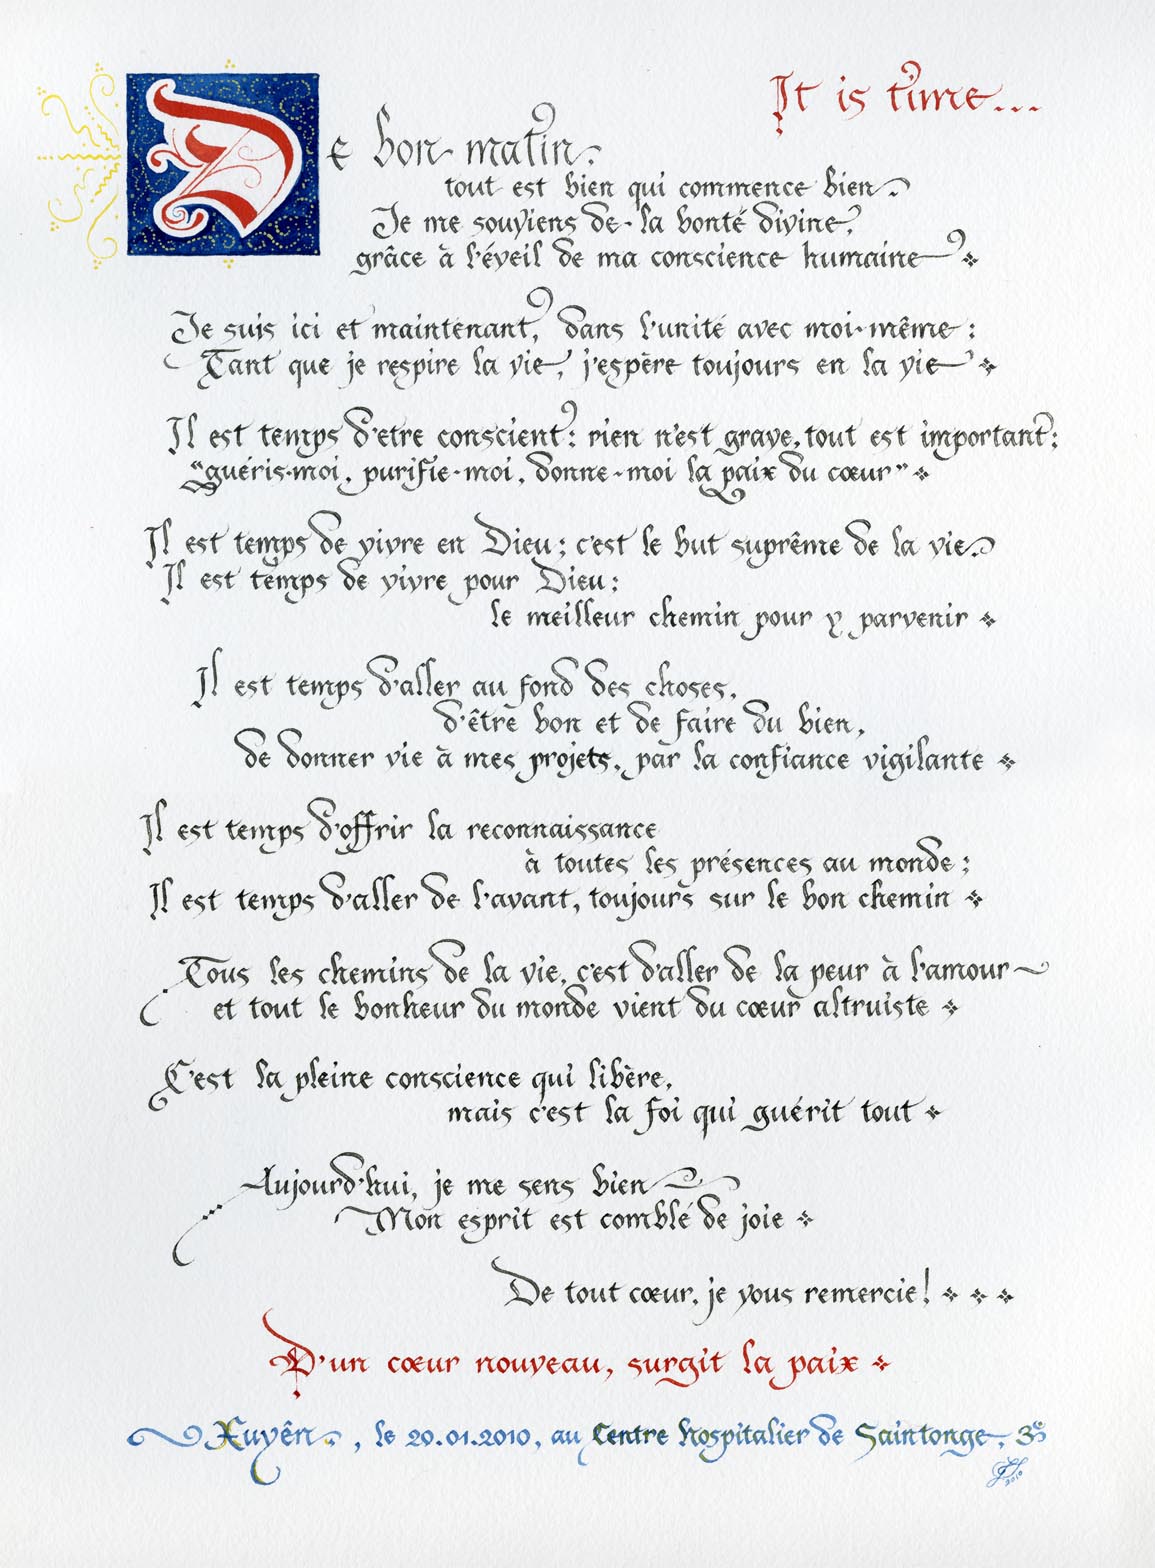 It is time...
De bon matin,
tout est bien qui commence bien,
Je me souviens de la bonté divine,
grâce à l'éveil de ma conscience humaine
Je suis ici et maintenant, dans l'unité avec moi-même :
Tant que je respire la vie, j'espère toujours en la vie
Il est temps d'etre conscient : rien n'est grave, tout est important :
"guéris-moi, purifie-moi, donne-moi la paix du cœur"
Il est temps de vivre en Dieu ; c'est le but suprême de la vie.
Il est temps de vivre pour Dieu ;
le meilleur chemin pour y parvenir
Il est temps d'aller au fond des choses,
d'être bon et de faire du bien,
de donner vie à mes projets, par la confiance vigilante
Il est temps d'offrir la reconnaissance
à toutes les présences au monde ;
Il est temps d'aller de l'avant, toujours sur le bon chemin
Tous les chemins de la vie, c'est d'aller de la peur à l'amour
et tout le bonheur du monde vient du cœur altruiste
C'est la pleine conscience qui libère,
mais c'est la foi qui guérit tout
Aujourd'hui, je me sens bien
Mon esprit est comblé de joie
De tout cœur, je vous remercie !
D'un cœur nouveau, surgit la paix
Xuyên, le 20.01.2010, au Centre hospitalier de Saintonge,
2010